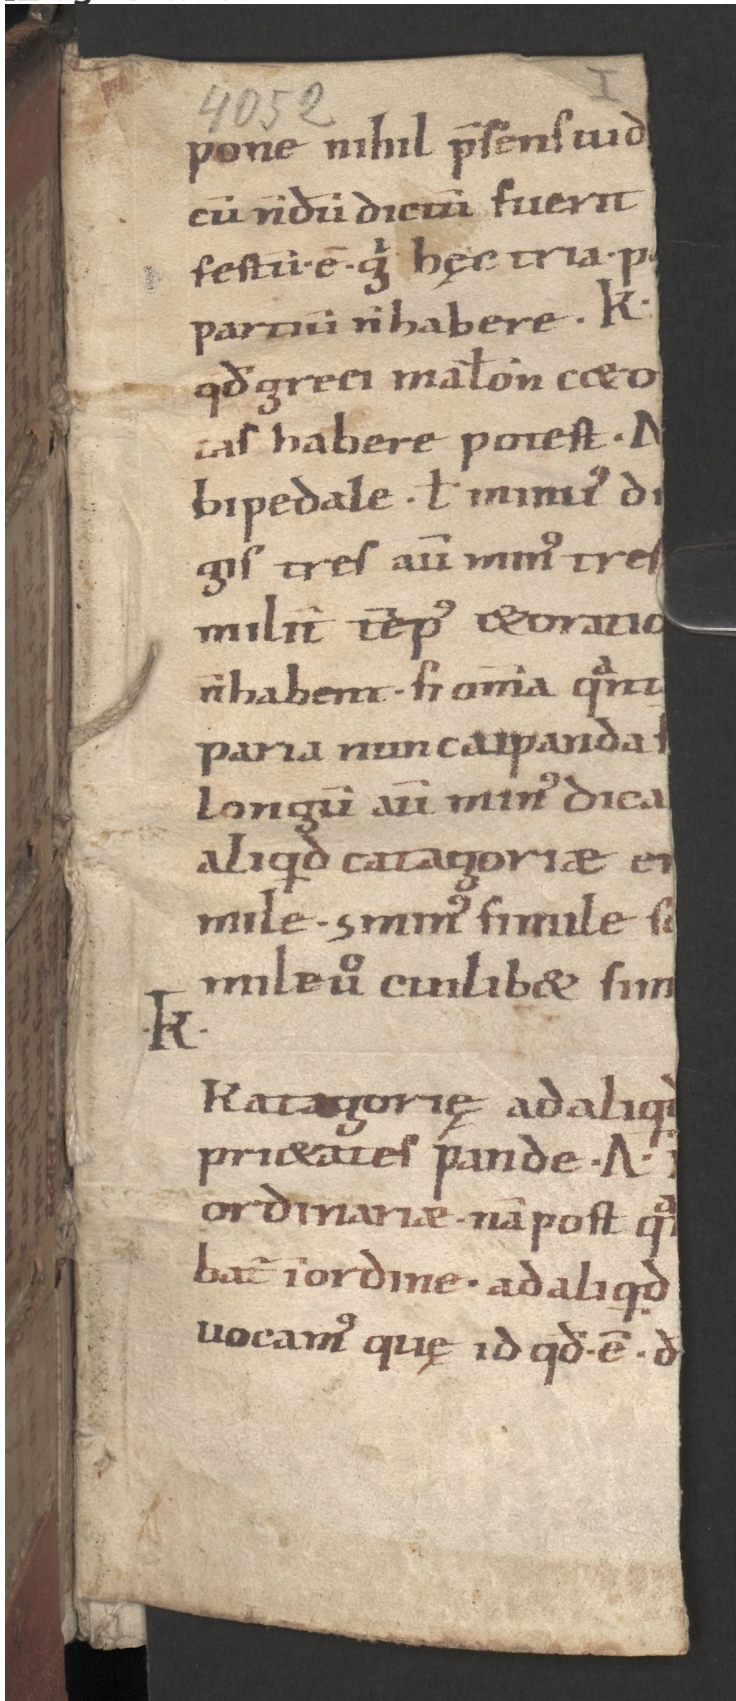 4052 I
pone nihil p̄sens uid
cū n̄dū dictū fuerit
festū·ē·gͥ hęc tria·p
partiū n̄ habere· K·
qđ greci mał̄on cceo
tas habere potest· A
bipedale· ł minuꝰ di
gis tres aū minꝰ tres
milit̄ tēpꝰ &oratio
n̄ habent· si om̄ia qͣnt
paria nuncaupanda s
longū aū minꝰ dica
aliqđ catagoriæ
mile· ꝫ minꝰ simile si
mile uͦ cuilib& sim
·K·
Katagorię ad aliqđ
pri&ates pande·Λ·
ordinariæ· nā post qͣ
bat̄ iordine· ad aliqđ
uocamꝰ quę id qđ·ē·d